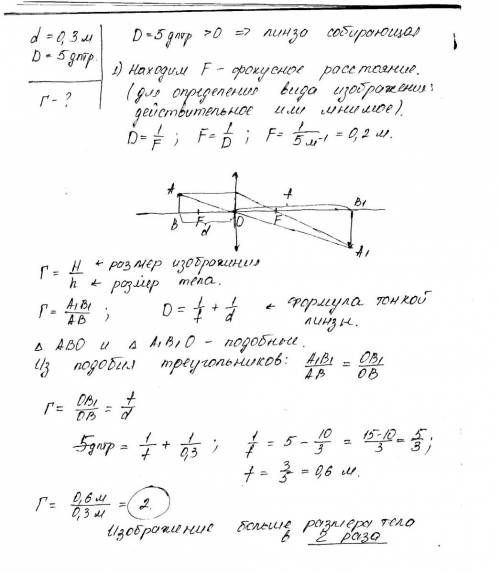 d = 0,3 м
D = 5 дптр.
Г - ?
D = 5 дптр > 0 => линза собирающая
1) Находим F - фокусное расстояние.
(для определения вида изображения:
действительное или мнимое).
D = 1/F ; F = 1/D ; F = 1/5 м⁻¹ = 0,2 м.
A B F d O F f B₁ A₁
Г = H/h ← размер изображения
← размер тела.
Г = A₁B₁/AB ; D = 1/f + 1/d ← формула тонкой
линзы.
△ ABO и △ A₁B₁O - подобные.
Из подобия треугольников: A₁B₁/AB = OB₁/OB
Г = OB₁/OB = f/d
5 дптр = 1/f + 1/0,3 ; 1/f = 5 - 10/3 = 15-10/3 = 5/3 ;
f = 3/5 = 0,6 м.
Г = 0,6 м/0,3 м = 2.
Изображение больше размера тела
в 2 раза